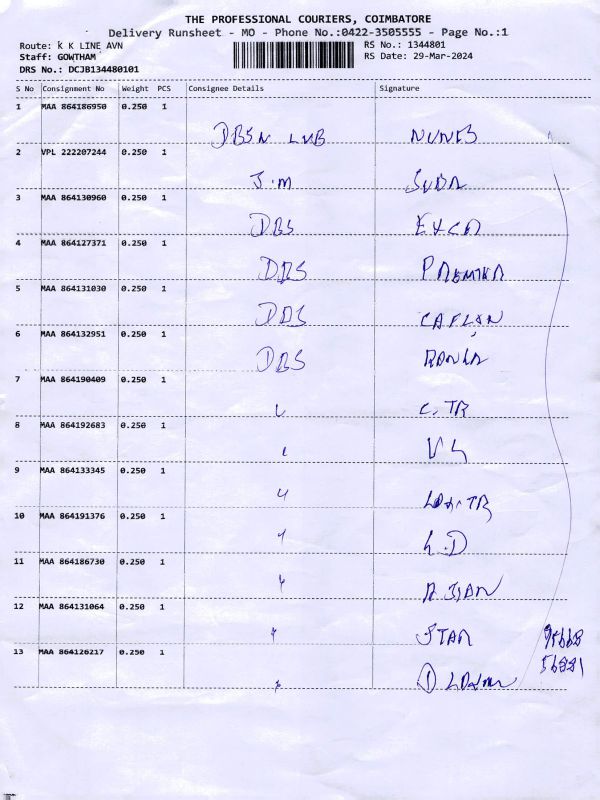 THE PROFESSIONAL COURIERS, COIMBATORE
Delivery Runsheet - MO - Phone No.:0422-3505555 - Page No.:1
Route: K K LINE AVN RS No.: 1344801
Staff: GOWTHAM RS Date: 29-Mar-2024
DRS No.: DCJB134480101
S No Consignment No Weight PCS Consignee Details Signature
1 MAA 864186950 0.250 1
DBS
2 VPL 222207244 0.250 1
J.M SUBA
3 MAA 864130960 0.250 1
DBS
4 MAA 864127371 0.250 1
DBS
5 MAA 864131030 0.250 1
DBS
6 MAA 864132951 0.250 1
DBS
7 MAA 864190409 0.250 1
C.TR
8 MAA 864192683 0.250 1
9 MAA 864133345 0.250 1
10 MAA 864191376 0.250 1
L.D
11 MAA 864186730 0.250 1
12 MAA 864131064 0.250 1
STAR 95668
13 MAA 864126217 0.250 1
56881